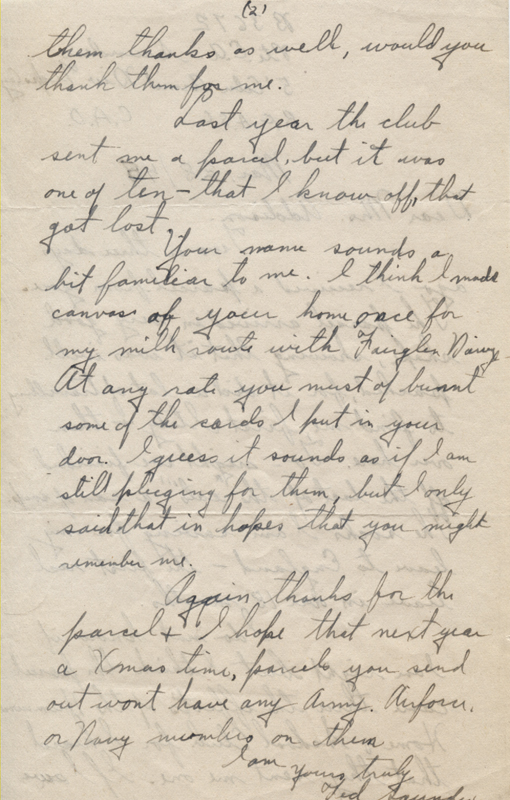 (2)
them thanks as well, would you
thank them for me.
Last year the club
sent me a parcel, but it was
one of ten - that I know off, that
got lost.
Your name sounds a
bit familiar to me. I think I made
canvas of your home once for
my milk route with Fairglen Dairy.
At any rate you must of burnt
some of the cards I put in your
door. I guess it sounds as if I am
still pluging for them, but I only
said that in hopes that you might
remember me.
Again thanks for the
parcel + I hope that next year
a Xmas time, parcels you send
out wont have any Army. Airforce.
or Navy numbers on them
I am yours truly
Ted Saunders